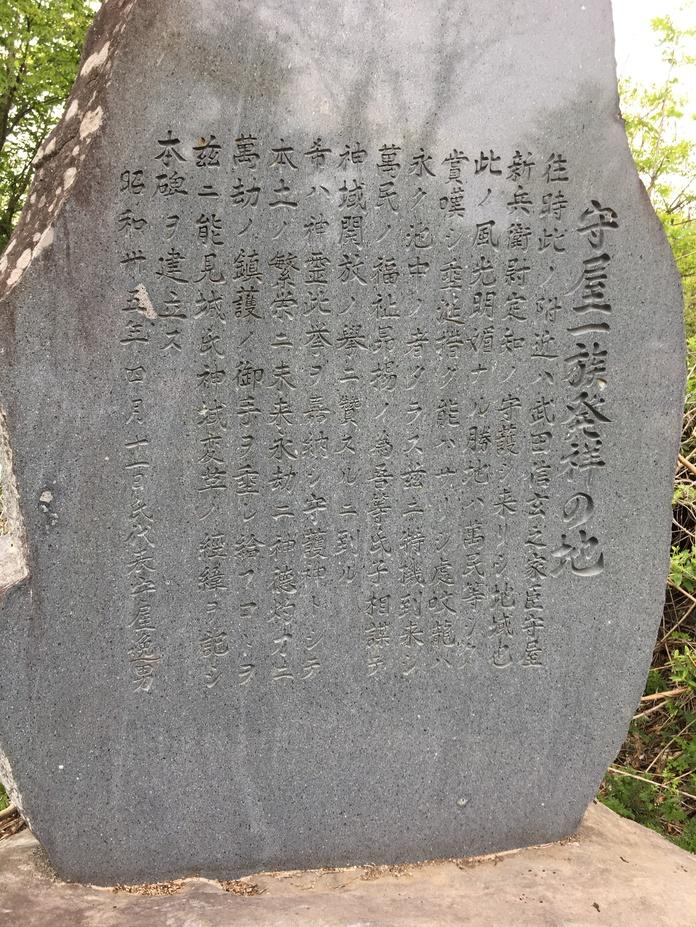 守屋一族発祥の地
往時此ノ附近ハ武田信玄之家臣守屋
新兵衛尉定知ノ守護シ来リシ地域也
此ノ風光明媚ナル勝地ハ萬民等シク
賞嘆シ垂涎措ク能ハサリシ處蛟龍ハ
永ク池中ノ者タラス茲ニ特機到来シ
萬民ノ福祉昂揚ノ為吾等氏子相謀テ
神域開放ノ擧ニ賛スルニ到ル
希ハ神霊此挙ヲ嘉納シ守護神トシテ
本土ノ繁栄ニ未来永劫ニ神徳灼オニ
萬劫ノ鎮護ノ御手ヲ垂レ給フコトヲ
茲ニ能見城氏神域変革ノ經緯ヲ記シ
本碑ヲ建立ス
昭和卅五年四月十一日氏代表守屋逸男